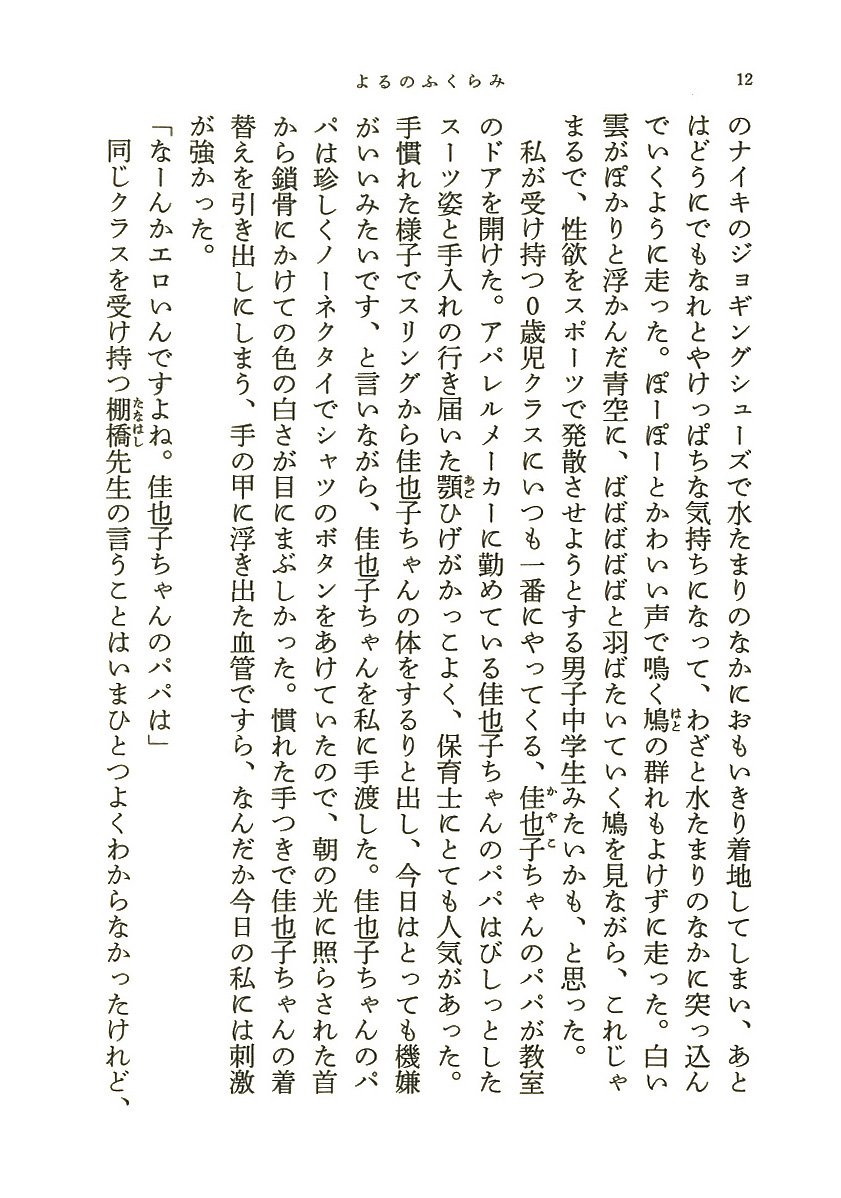 よるのふくらみ
12
のナイキのジョギングシューズで水たまりのなかにおもいきり着地してしまい、あと
はどうにでもなれとやけっぱちな気持ちになって、わざと水たまりのなかに突っ込ん
でいくように走った。ぽーぽーとかわいい声で鳴く鳩の群れもよけずに走った。白い
雲がぽかりと浮かんだ青空に、ばばばばばと羽ばたいていく鳩を見ながら、これじゃ
まるで、性欲をスポーツで発散させようとする男子中学生みたいかも、と思った。
私が受け持つ０歳児クラスにいつも一番にやってくる、佳也子ちゃんのパパが教室
のドアを開けた。アパレルメーカーに勤めている佳也子ちゃんのパパはびしっとした
スーツ姿と手入れの行き届いた顎ひげがかっこよく、保育士にとても人気があった。
手慣れた様子でスリングから佳也子ちゃんの体をするりと出し、今日はとっても機嫌
がいいみたいです、と言いながら、佳也子ちゃんを私に手渡した。佳也子ちゃんのパ
パは珍しくノーネクタイでシャツのボタンをあけていたので、朝の光に照らされた首
から鎖骨にかけての色の白さが目にまぶしかった。慣れた手つきで佳也子ちゃんの着
替えを引き出しにしまう、手の甲に浮き出た血管ですら、なんだか今日の私には刺激
が強かった。
「なーんかエロいんですよね。佳也子ちゃんのパパは」
同じクラスを受け持つ棚橋先生の言うことはいまひとつよくわからなかったけれど、
はと
かやこ
あご
たなはし